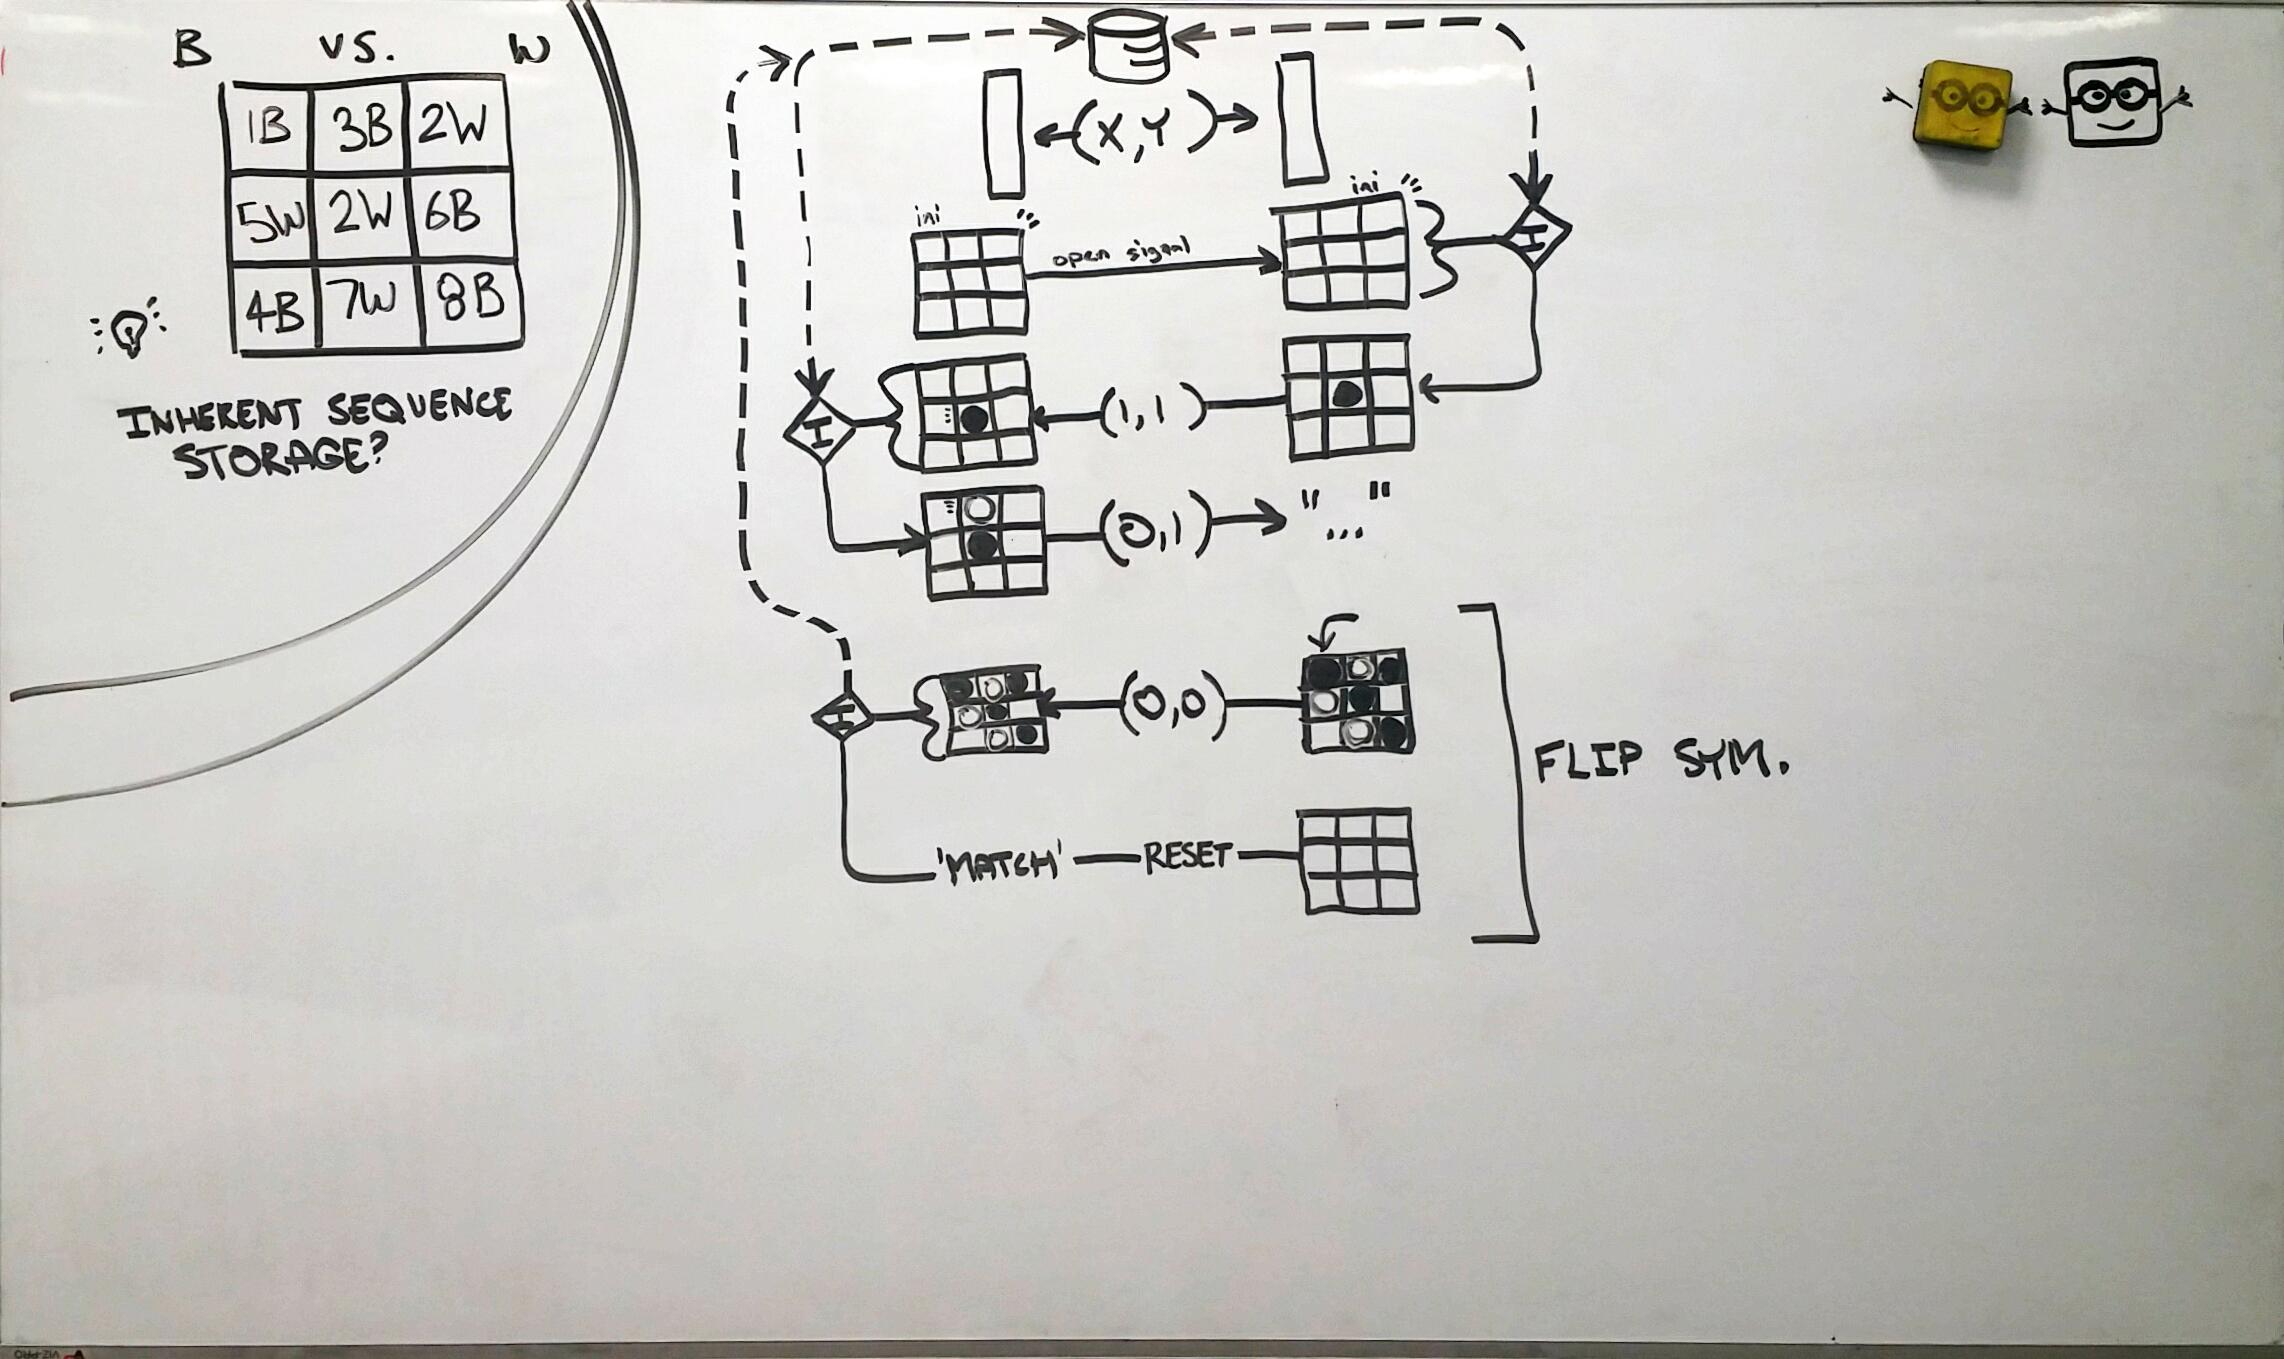 B vs. W
1B 3B 2W
5W 2W 6B
4B 7W 8B
INHERENT SEQUENCE
STORAGE?
(X,Y)
ini
ini
open signal
I
(1,1)
I
(0,1)
"..."
(0,0)
I
FLIP SYM.
'MATCH' — RESET